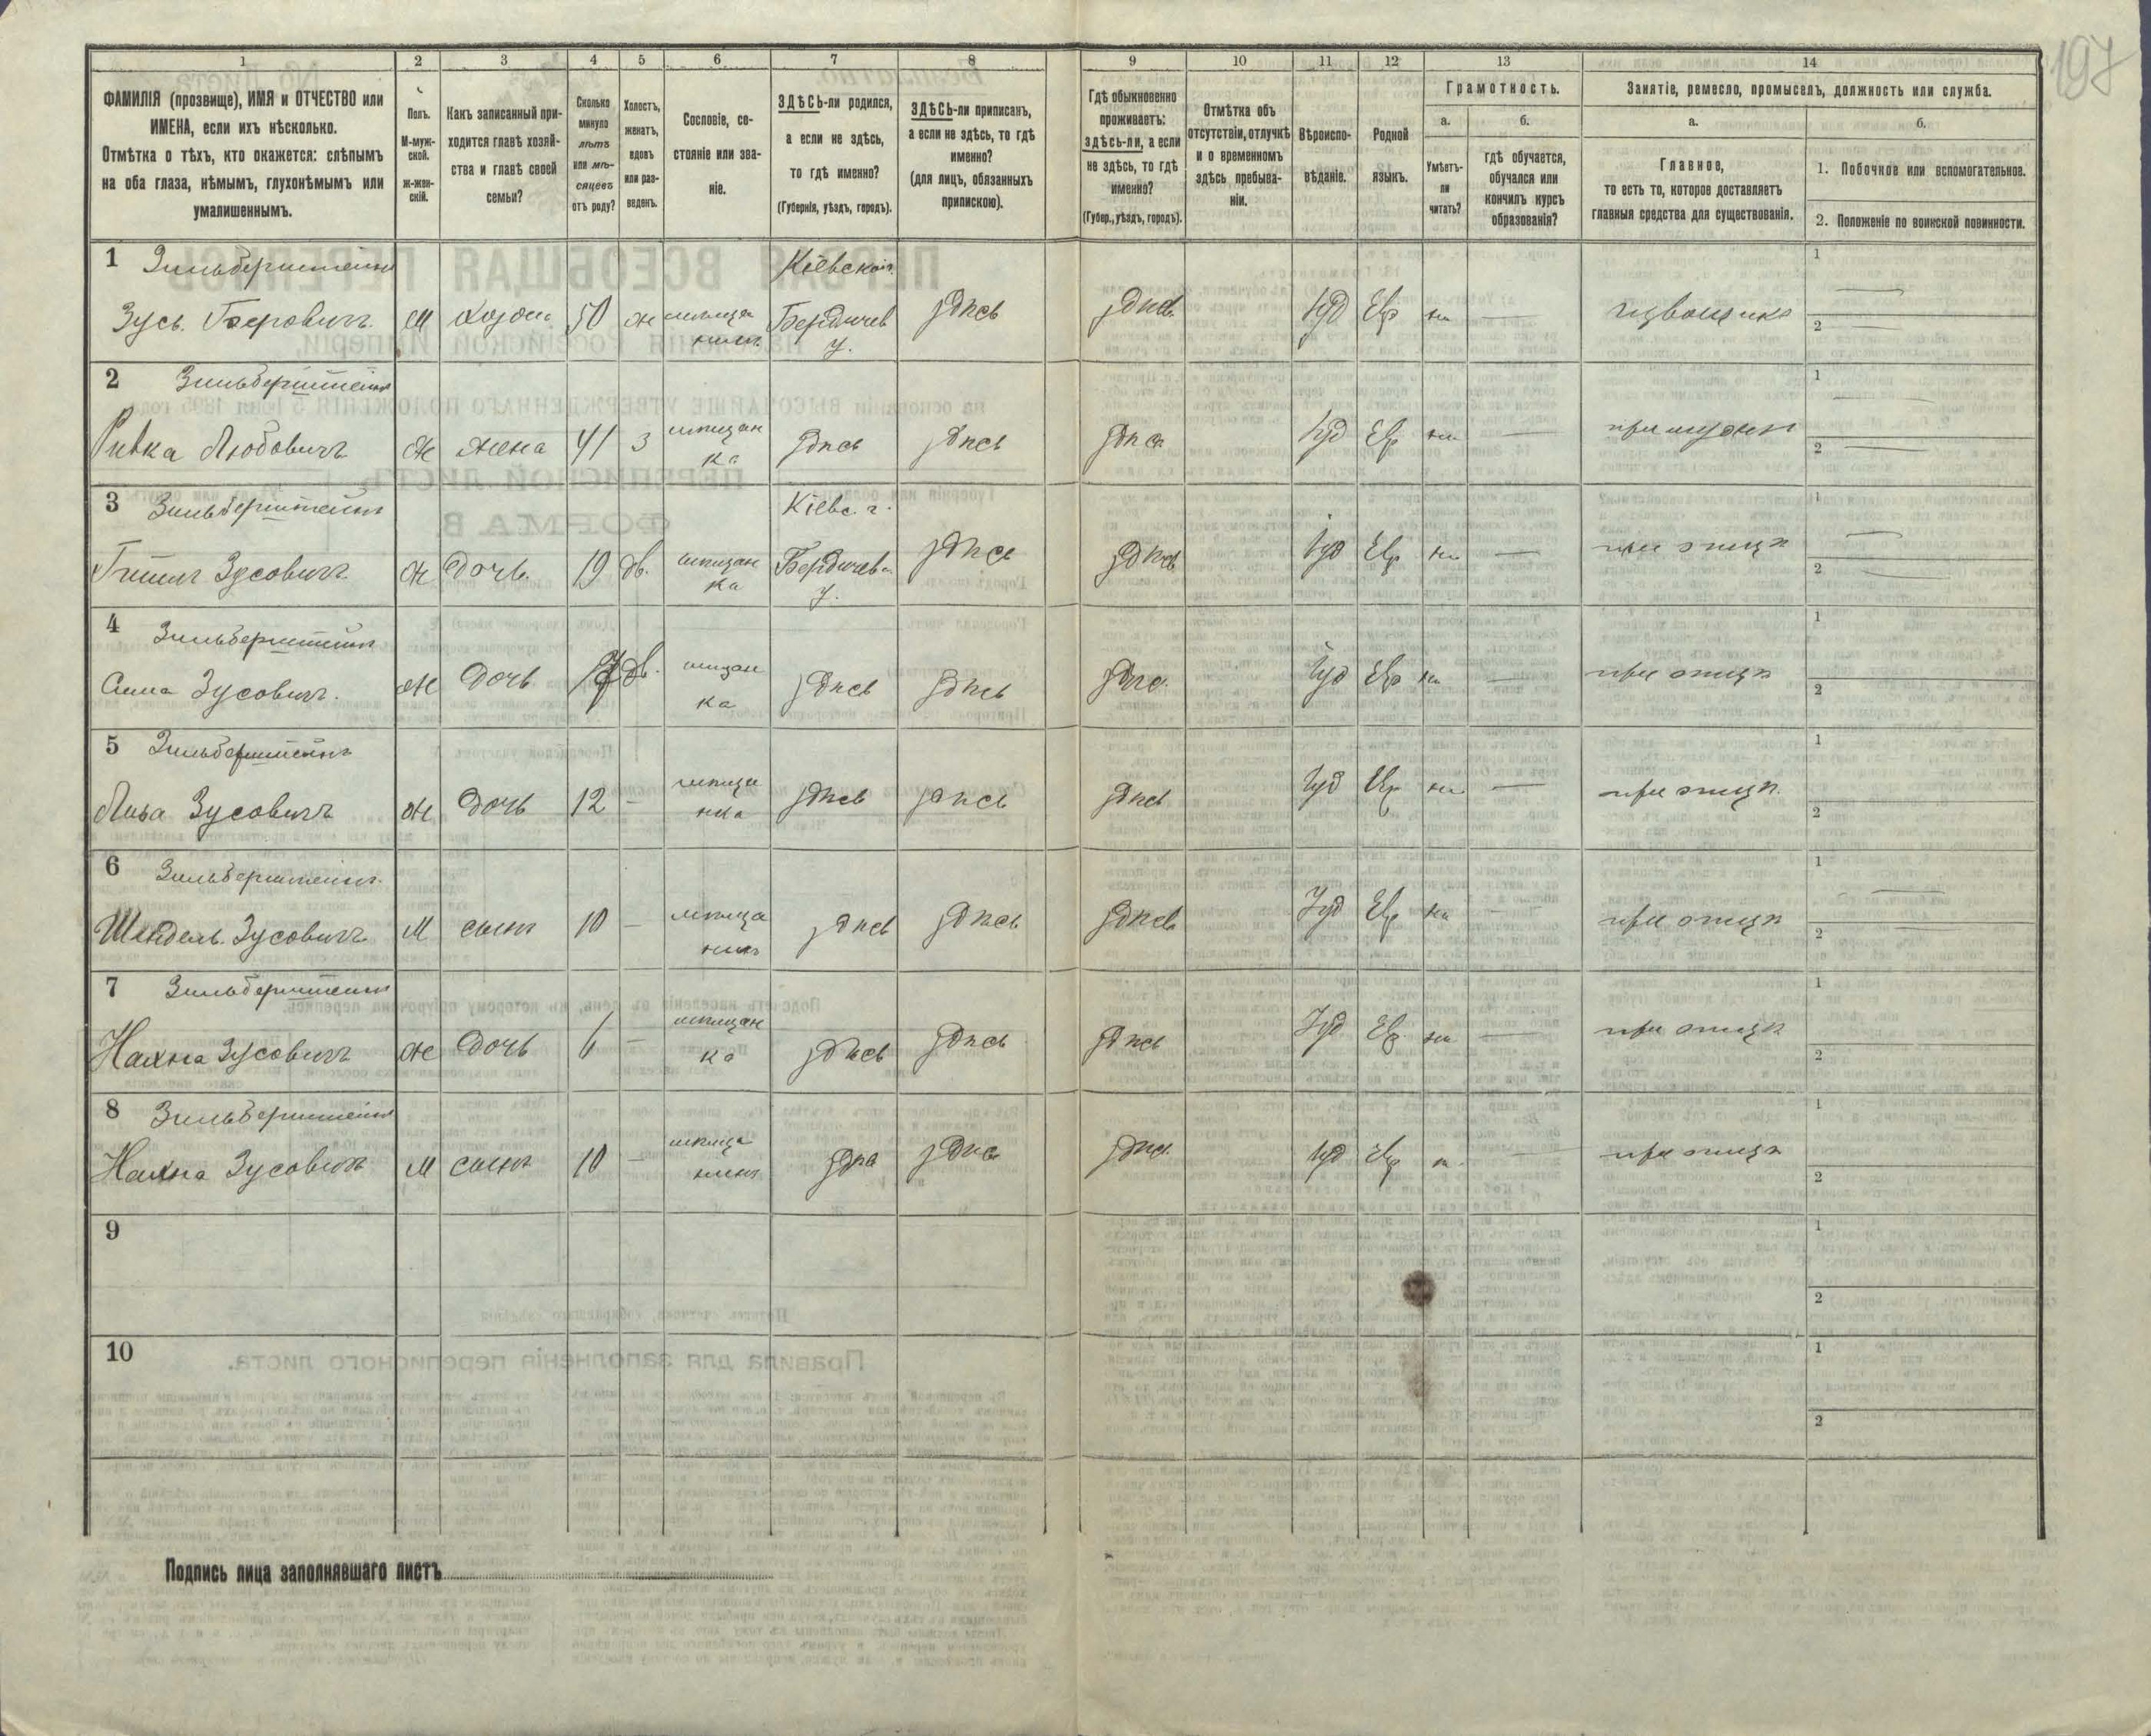 197
1
2
3
4
5
6
7
8
9
10
11
12
13
14
ФАМИЛІЯ (прозвище), ИМЯ и ОТЧЕСТВО или
ИМЕНА, если ихъ нѣсколько.
Отмѣтка о тѣхъ, кто окажется: слѣпымъ
на оба глаза, нѣмымъ, глухонѣмымъ или
умалишеннымъ.
Полъ.
М-муж-
ской.
Ж-жен-
скій.
Какъ записанный при-
ходится главѣ хозяй-
ства и главѣ своей
семьи?
Сколько
минуло
лѣтъ
или мѣ-
сяцевъ
отъ роду?
Холостъ,
женатъ,
вдовъ
или раз-
веденъ.
Сословіе, со-
стояніе или зва-
ніе.
ЗДѢСЬ-ли родился,
а если не здѣсь,
то гдѣ именно?
(Губернія, уѣздъ, городъ).
ЗДѢСЬ-ли приписанъ,
а если не здѣсь, то гдѣ
именно?
(для лицъ, обязанныхъ
припискою).
Гдѣ обыкновенно
проживаетъ:
здѣсь-ли, а если
не здѣсь, то гдѣ
именно?
(Губер., уѣздъ, городъ).
Отмѣтка объ
отсутствіи, отлучкѣ
и о временномъ
здѣсь пребыва-
ніи.
Вѣроиспо-
вѣданіе.
Родной
языкъ.
Грамотность.
а.
Умѣетъ-
ли
читать?
б.
гдѣ обучается,
обучался или
кончилъ курсъ
образованія?
Занятіе, ремесло, промыселъ, должность или служба.
а.
Главное,
то есть то, которое доставляетъ
главныя средства для существованія.
б.
1. Побочное или вспомогательное.
2. Положеніе по воинской повинности.
1 Зильберштейнъ
Зусь Беровичъ М хозяи 50 ж мѣща
нинъ
Кіевской г.
Бердичев
у.
здѣсь здѣсь Іуд Евр не — извощикъ
1
2
2 Зильберштейнъ
Ривка Любовичъ Ж жена 41 з мѣщан
ка
здѣсь здѣсь здѣсь Іуд Евр не — при мужѣ
1
2
3 Зильберштейнъ
Зусовичъ Ж дочь 19 дв. мѣщан
ка
Кіевс. г.
Бердичев.
у.
здѣсь здѣсь Іуд Евр не — при отцѣ
1
2
4 Зильберштейнъ
Сима Зусовичъ. Ж дочь дв. мѣщан
ка
здѣсь здѣсь здѣс. Іуд Евр не — при отцѣ
1
2
5 Зильберштейнъ
Зусовичъ Ж дочь 12 — мѣща
нка
здѣсь здѣсь здѣсь Іуд Евр не — при отцѣ
1
2
6 Зильберштейнъ
Шендель Зусовичъ М сынъ 10 — мѣща
нинъ
здѣсь здѣсь здѣсь Іуд Евр не — при отцѣ
1
2
7 Зильберштейнъ
Зусовичъ Ж дочь 6 — мѣщан
ка
здѣсь здѣсь здѣсь Іуд Евр не — при отцѣ
1
2
8 Зильберштейнъ
Зусовичъ М сынъ 10 — мѣща
нинъ
здѣс здѣс здѣс. Іуд Евр н. — при отцѣ
1
2
9
1
2
10
1
2
Подпись лица заполнявшаго листъ